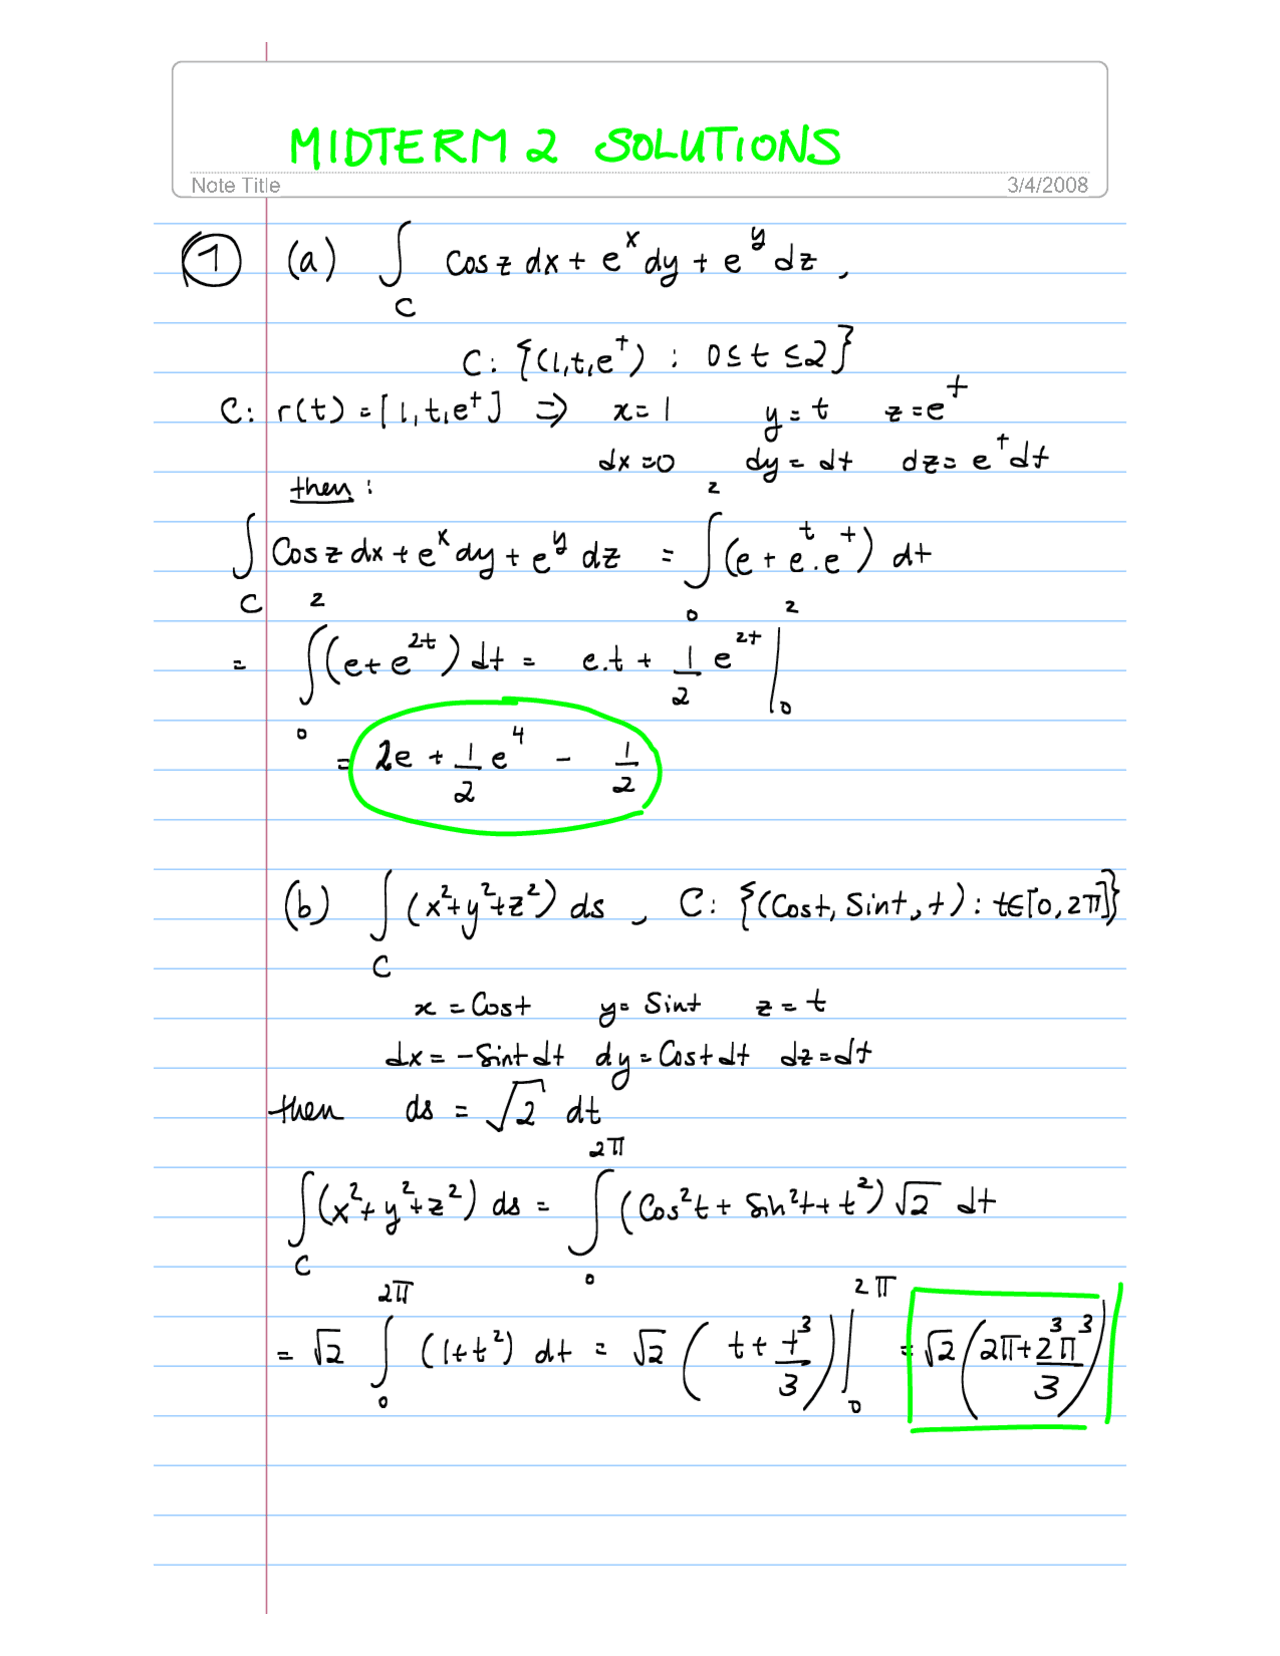 MIDTERM 2 SOLUTIONS
Note Title 3/4/2008
① (a) ∫_C Cos z dx + e^x dy + e^y dz ,
C: {(1,t,e^t) : 0≤t≤2}
C: r(t) = [1,t,e^t] ⇒ x=1 y=t z=e^t
dx=0 dy=dt dz=e^t dt
then:
∫_C Cos z dx + e^x dy + e^y dz = ∫_0^2 (e + e^t.e^t) dt
= ∫_0^2 (e+e^{2t}) dt = e.t + 1/2 e^{2t} |_0^2
= 2e + 1/2 e^4 - 1/2
(b) ∫_C (x²+y²+z²) ds , C: {(Cost, Sint, t) : t∈[0,2π]}
x = Cost y = Sint z = t
dx = -Sint dt dy = Cost dt dz = dt
then ds = √2 dt
∫_C (x²+y²+z²) ds = ∫_0^{2π} (Cos²t + Sin²t + t²) √2 dt
= √2 ∫_0^{2π} (1+t²) dt = √2 (t + t³/3) |_0^{2π} = √2 (2π + 2³π³/3)